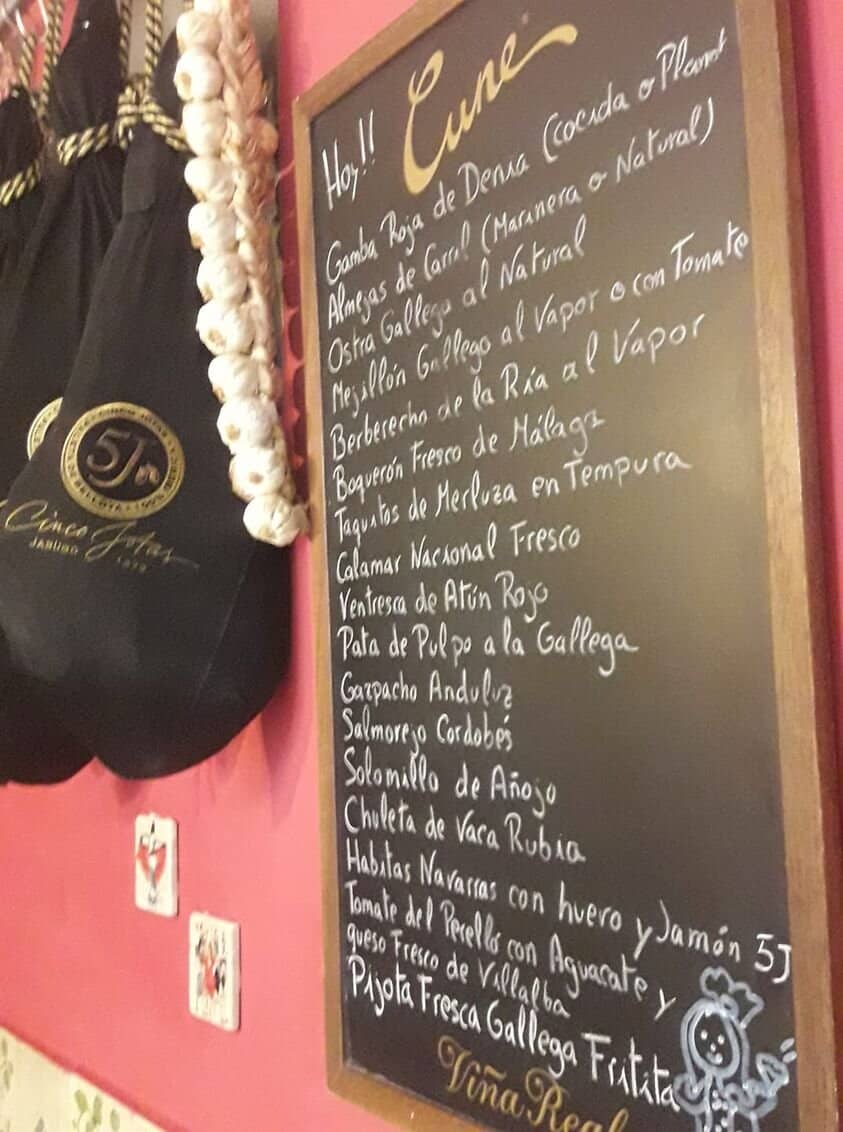 Cune
Hoy!!
Gamba Roja de Denia (cocida o Planct
Almejas de Carril (Marinera o Natural)
Ostra Gallega al Natural
Mejillón Gallego al Vapor o con Tomate
Berberecho de la Ría al Vapor
Boquerón Fresco de Málaga
Taquitos de Merluza en Tempura
Calamar Nacional Fresco
Ventresca de Atún Rojo
Pata de Pulpo a la Gallega
Gazpacho Andaluz
Salmorejo Cordobés
Solomillo de Añojo
Chuleta de Vaca Rubia
Habitas Navarras con huevo y Jamón 5J
Tomate del Perelló con Aguacate y
queso Fresco de Villalba
Pijota Fresca Gallega Fritita
Viña Real
5J
Cinco Jotas
JABUGO 1879